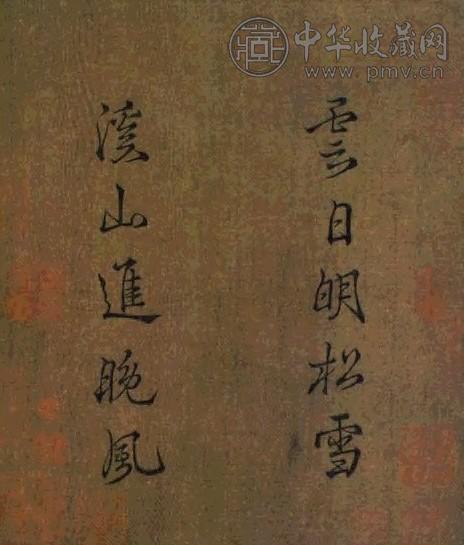 中华收藏网
www.pmv.cn
雲日眀松雪
溪山進晚風